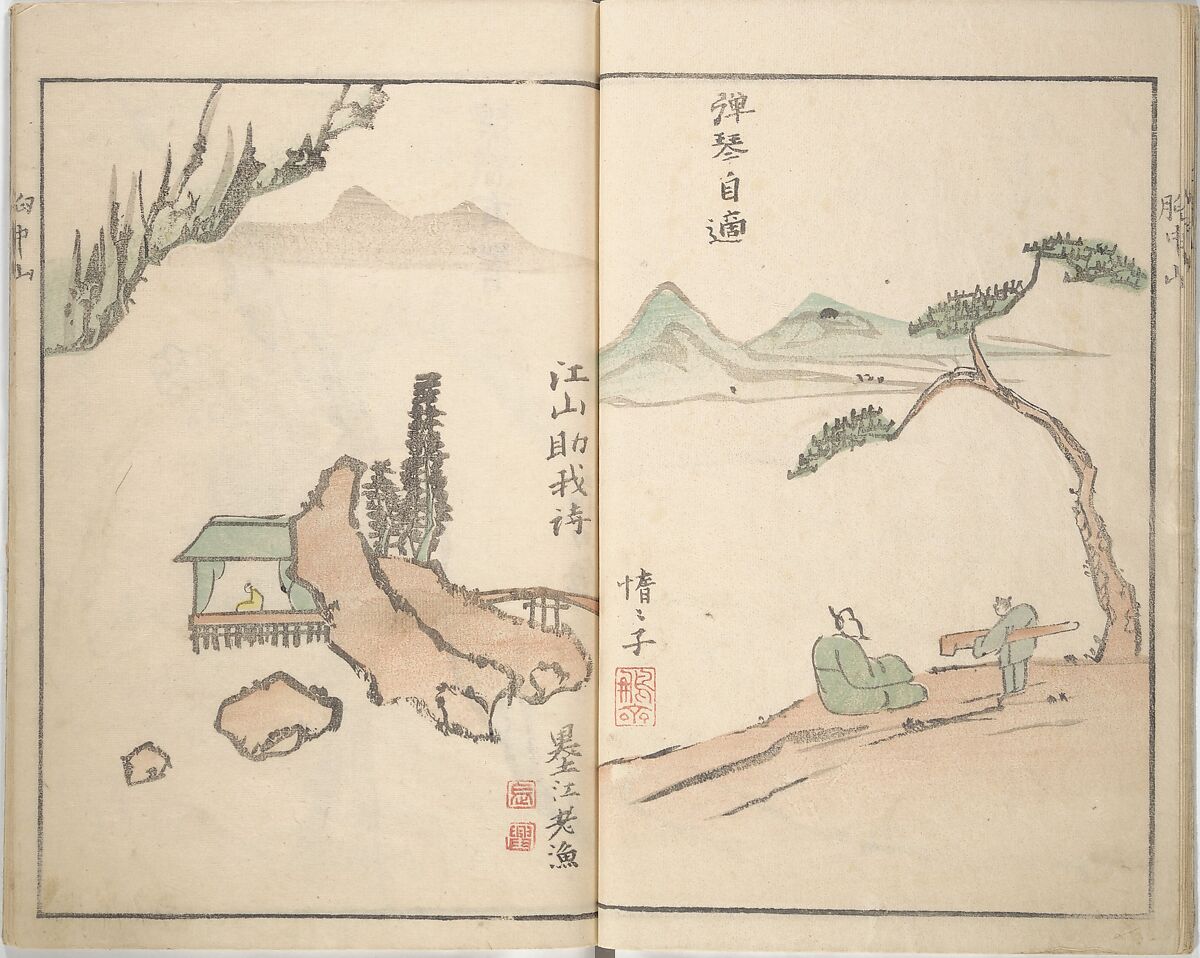 胸中山
弾琴自適
惰〻子
江山助我詩
墨江老漁
胸中山